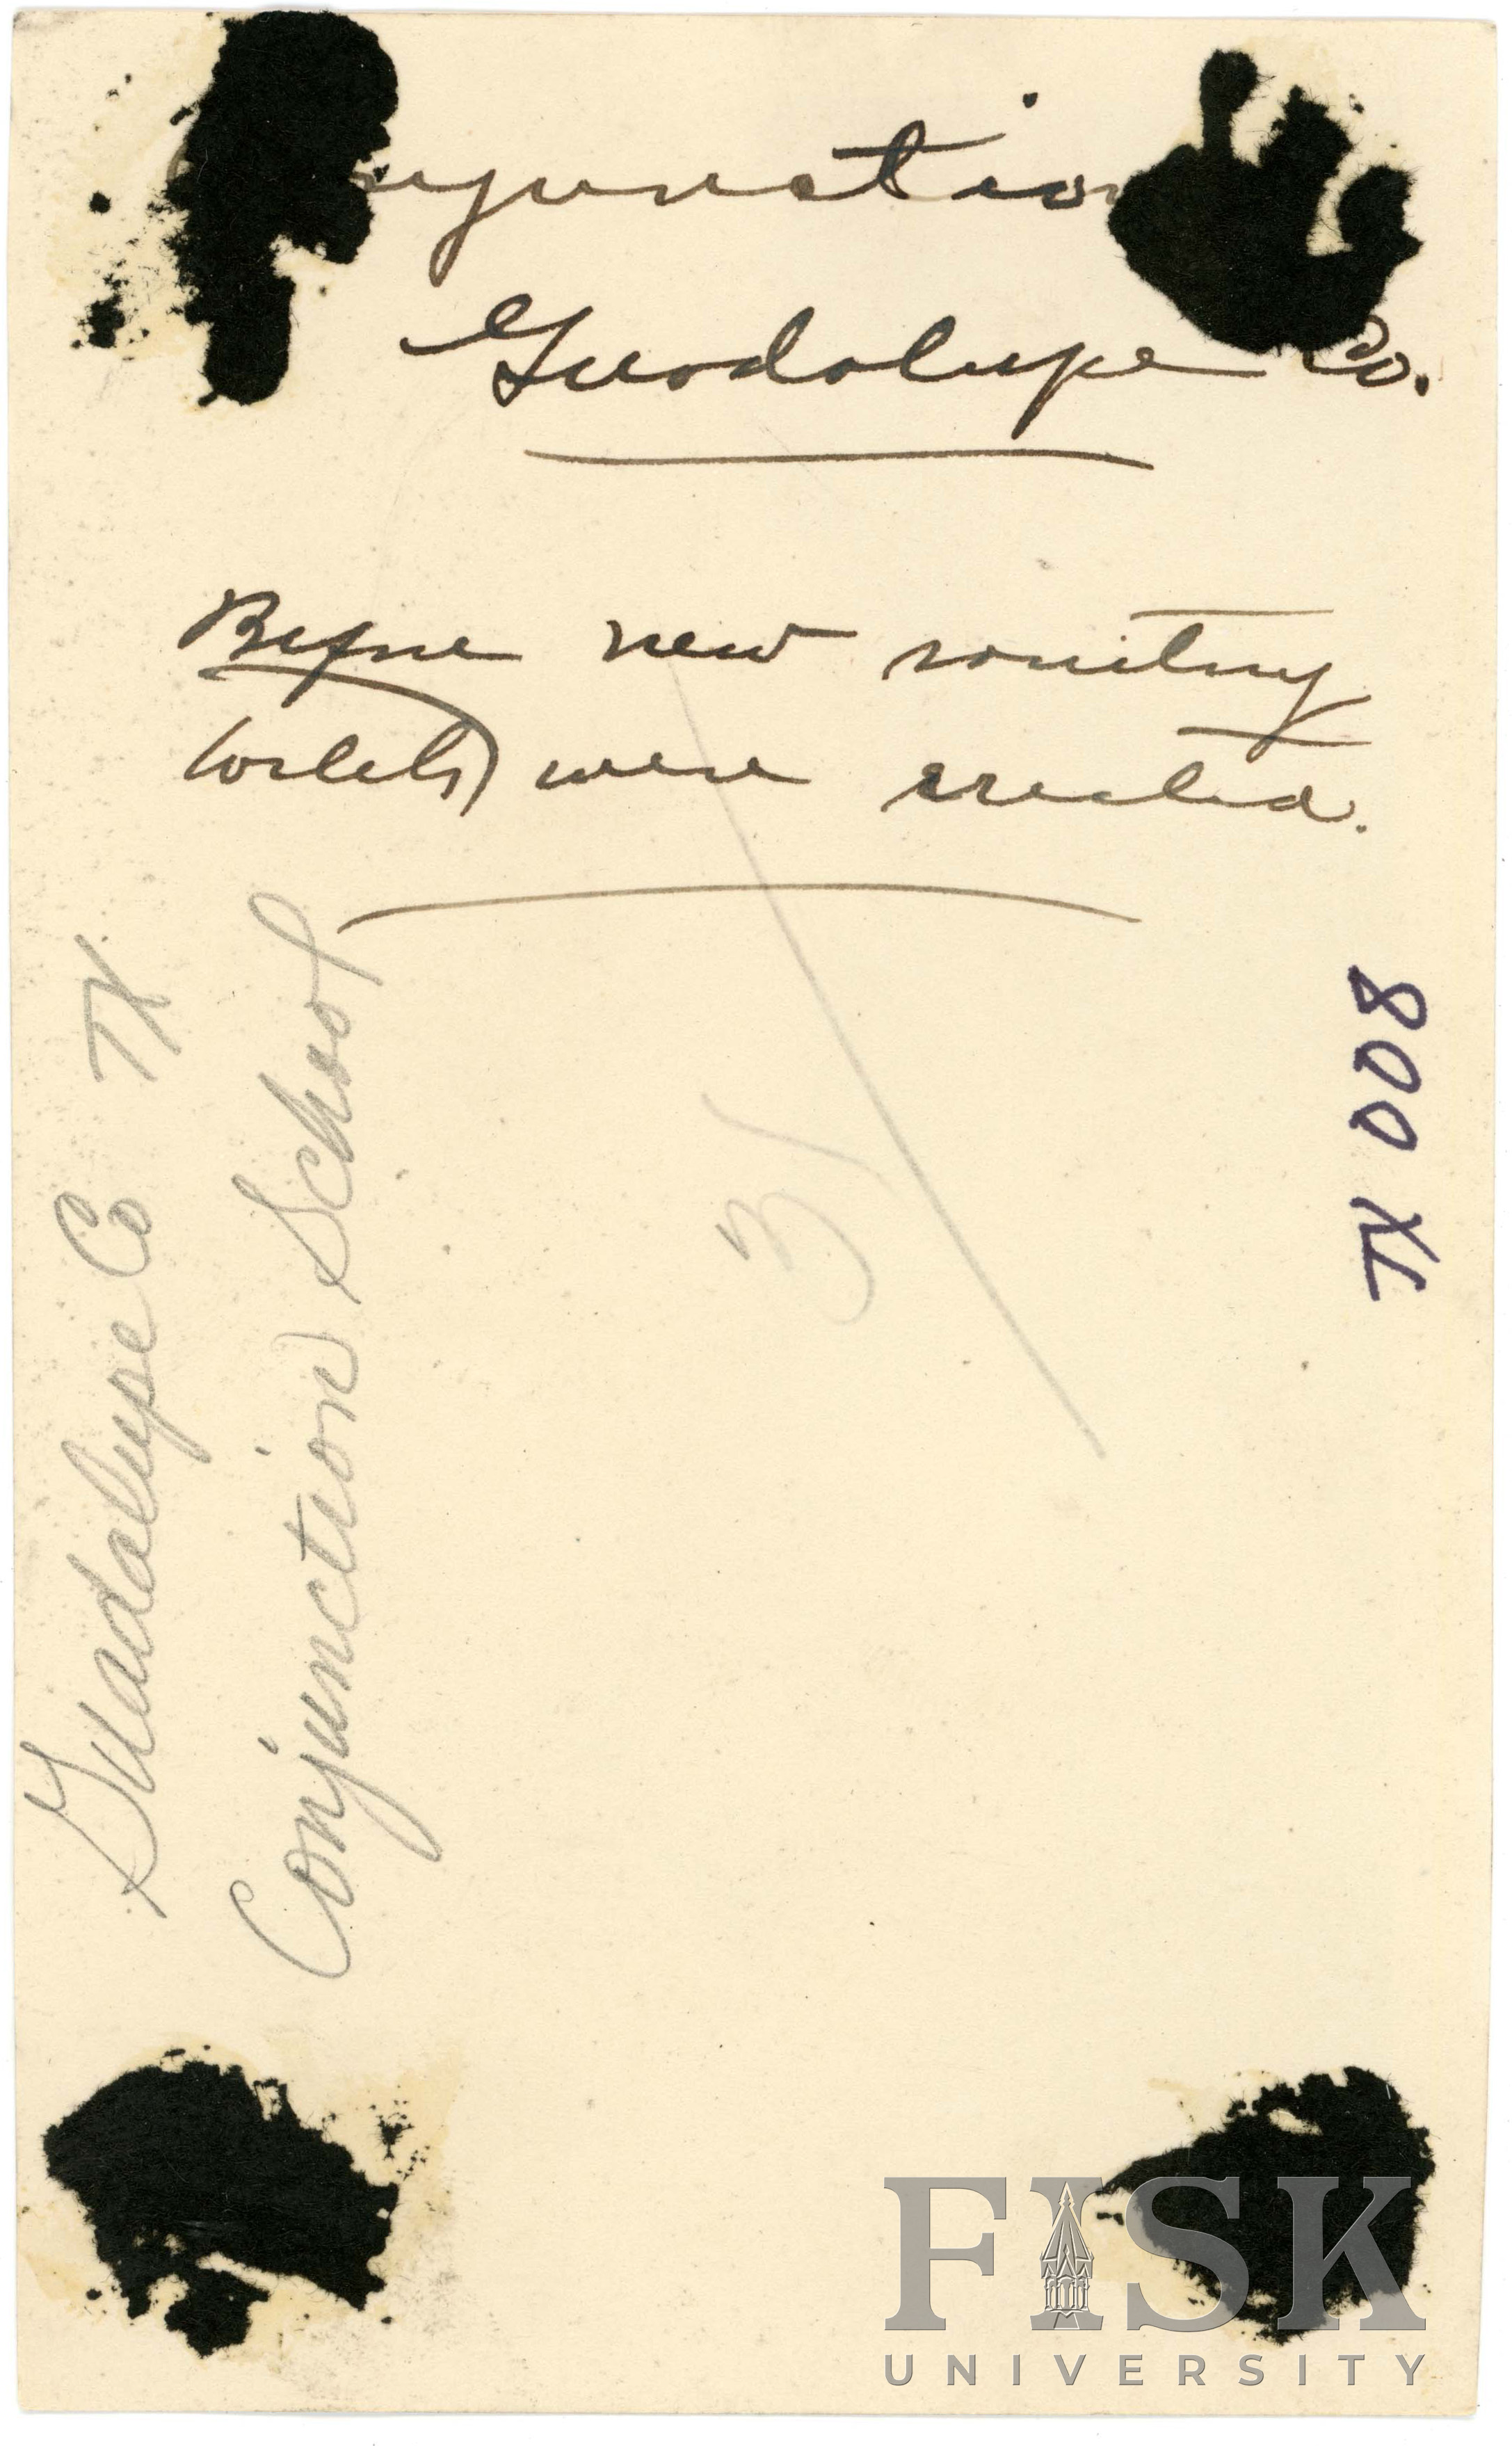 Conjunction
Guadalupe Co.
Before new sanitary
toilets were erected.
Guadalupe Co TX
Conjunction School
TX 008
3/
FISK
UNIVERSITY